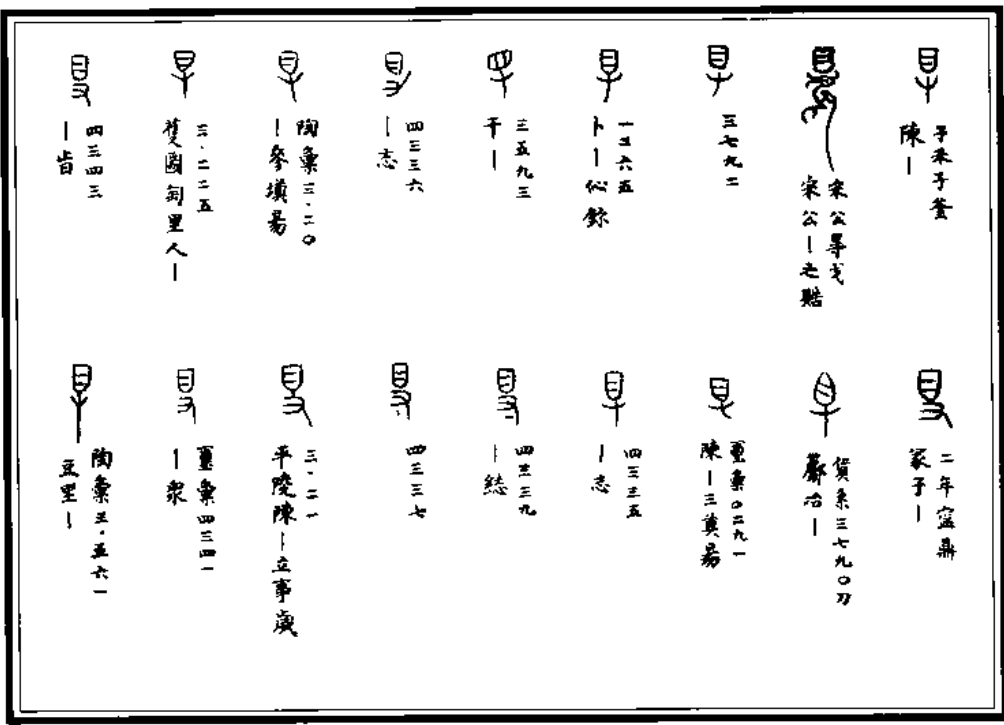 子禾子釜
陳—
宋公㝵戈
宋公—之
三七九二
一三六五
卜—鉨
三五九三
干—
四三三六
—志
陶彙三·二〇
—參墳昜
三·二二五
蒦圆匋里人—
四三四三
—旨
二年寍鼎
冢子—
貨系三七九〇刀
冶—
璽彙〇二九一
陳—三奠昜
四三三五
—志
四三三九
—
四三三七
三·二一
平陵陳—立事歲
璽彙四三四一
—衆
陶彙三·五六一
豆里—